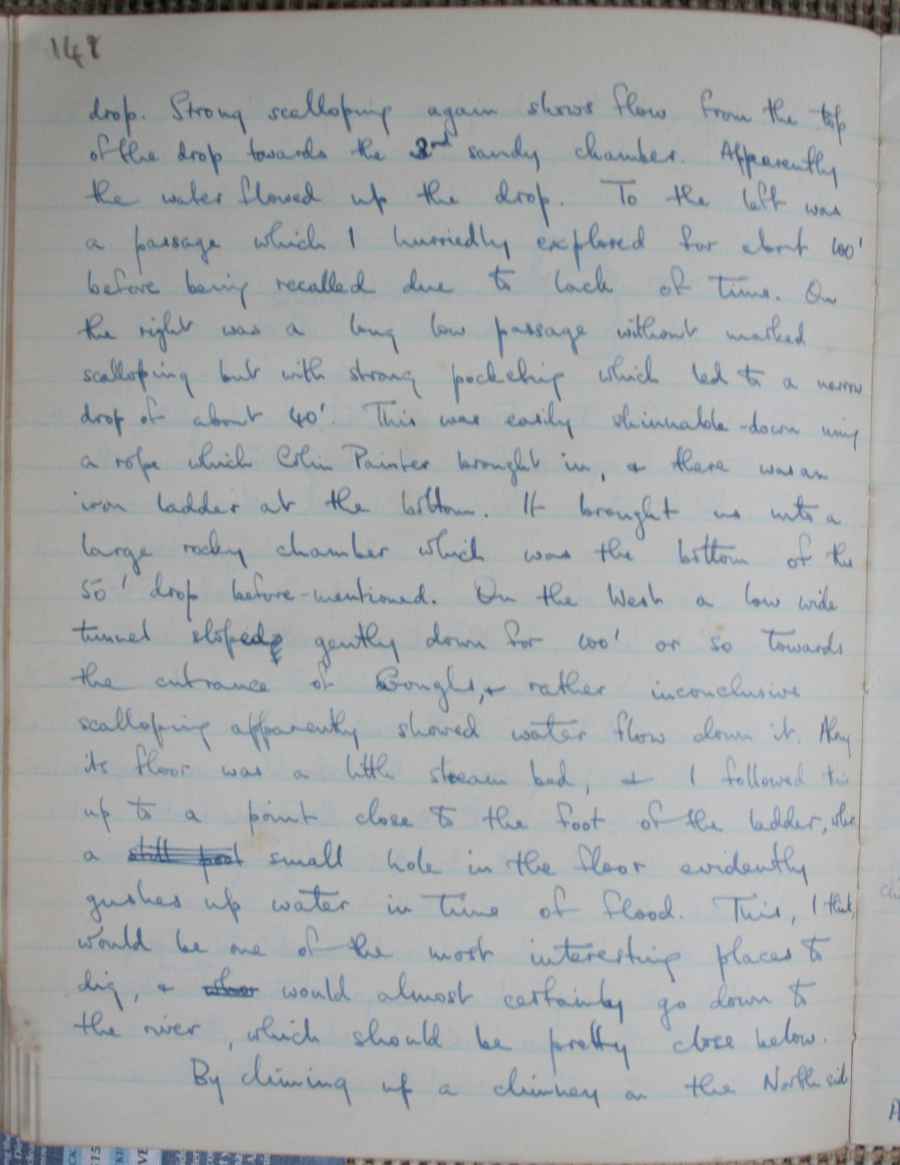 148
drop. Strong scalloping again shows flow from the top
of the drop towards the 2nd sandy chamber. Apparently
the water flowed up the drop. To the left was
a passage which I hurriedly explored for about 100'
before being recalled due to lack of time. On
the right was a long low passage without marked
scalloping but with strong pocketing which led to a narrow
drop of about 40'. This was easily shinnable-down using
a rope which Colin Painter brought in, & there was an
iron ladder at the bottom. It brought us into a
large rocky chamber which was the bottom of the
50' drop before-mentioned. On the West a low wide
tunnel sloped gently down for 100' or so towards
the entrance of Goughs, & rather inconclusive
scalloping apparently showed water flow down it. Along
its floor was a little stream bed, & I followed this
up to a point close to the foot of the ladder, where
a still pool small hole in the floor evidently
gushes up water in time of flood. This, I think,
would be one of the most interesting places to
dig, & would almost certainly go down to
the river, which should be pretty close below.
By climing up a chimney on the North side